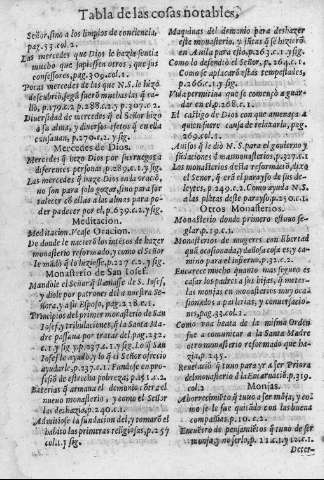 Tabla de las cosas notables,
Señor, sino a los limpios de conciencia,
pag. 33. col. 2.
Las mercedes que Dios le hazia sentia
mucho que supiessen otros, que sus
confessores, pag. 309. col. 1.
Pocas mercedes de las que N. S. le hizo
callo, p. 179. c. 2. p. 288. c. 2. y p. 307. c. 2.
Diuersidad de mercedes q̃ el Señor hizo
a su alma, y diuersos efetos q̃ en ella
causauan, p. 270. c. 2. y sig.
Mercedes de Dios.
Mercedes q̃ hizo Dios por sus ruegos a
diferentes personas. p. 289. c. 1. y sig.
Las mercedes q̃ haze Dios en la oració,
no son para solo gozar, sino para for
talecer cõ ellas a las almas para po-
der padecer por el, p. 269. c. 1. y sig.
Meditacion.
Meditacion. Vease Oracion.
De donde le nacierõ los intẽtos de hazer
monasterio reformado, y como el Señor
le mãdò q̃ lo hiziesse, p. 227. c. 2. y sig.
Monasterio de San Iosef.
Mandole el Señor q̃ llamasse de S. Iosef,
y diole por patrones del a nuestra Se
ñora, y a su Esposo, pag. 228. c. 1.
Principios del primer monasterio de San
Iosef, y tribulaciones, q̃ la Santa Ma
dre passaua por tratar del, pag. 232.
c. 1. y sig. y p. 237. c. 1. y sig. Lo q̃ San
Iosef le ayudò, y lo q̃ el Señor ofrecio
ayudarle, p. 237. c. 1. Fundose con pro-
fessiõ de estrecha pobreza, 245. c. 1.
Baterias q̃ armaua el demonio cõtra el
nueuo monasterio, y como el Señor
las deshazia, p. 240. c. 1.
Admitiose la fundacion del, y tomarõ el
habito las primeras religiosas, p. 257
col. 1. y sig.
Maquinas del demonio para deshazer
este monasterio, y juntas q̃ se hizierõ
en Auila para esto, p. 263. c. 1. y sig.
Como lo defendiò el Señor, p. 264. c. 1.
Como se aplacarõ estas tempestades,
p. 266. c. 1. y sig.
Vida penitente que se començò a guar
dar en el. p. 268. c. 1.
El castigo de Dios con que amenaza a
quien fuere causa de relaxarle, pag.
269. col. 1.
Auisos q̃ le diò N. S. para el gouierno y
fundaciones de monasterios, p. 327. c. 1.
Los monasterios desta reformaciõ, dixo
el Señor, q̃ erã el parayso de sus de-
leytes, p. 249. c. 2. Como ayuda N. S.
a las plãtas deste parayso, p. 250. c. 1.
Otros Monasterios.
Monasterio donde primero estuuo se-
glar. p. 19. c. 1.
Monasterios de mugeres con libertad
que ocasionada, y dañosa cosa es, y ca-
mino para el infierno, p. 32. c. 2.
Encarece mucho quanto mas seguro es
casar los padres a sus hijas, q̃ meter-
las monjas en monasterios muy oca-
sionados a parlerias, y conuersacio-
nes, pag. 33. col.
Como vna beata de la misma Orden
fue a comunicar a la Santa Madre
otro monasterio reformado que ha-
zia, p. 245.
Reuelaciõ q̃ tuuo para yr a ser Priora
del monasterio de la Encarnaciõ, p. 319.
col. 2
Monjas.
Aborrecimiẽto q̃ tuuo a ser mõja, y col
mo se le fue quitãdo con las buenas
compañias, p. 10. c. 2.
Encuẽtro de pensamiẽtos q̃ tuuo de ser
monja, y no serlo, p. 11. c. 1. y 10. c. 1.